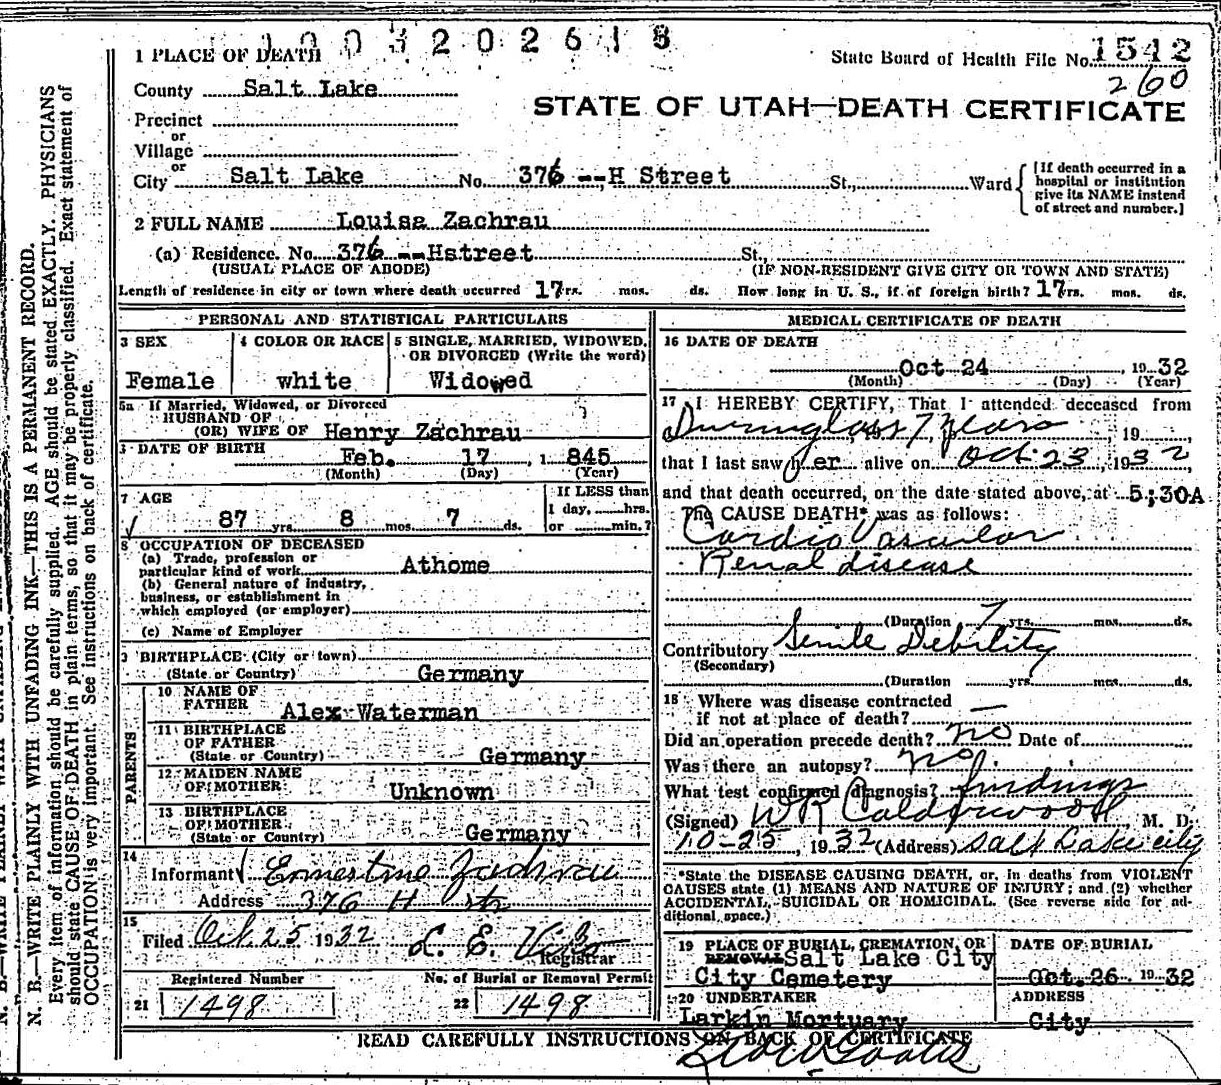 1003202618
1 PLACE OF DEATH
State Board of Health File No. 1542
260
County Salt Lake
STATE OF UTAH—DEATH CERTIFICATE
Precinct
or
Village
or
City Salt Lake No. 376 --H Street St., Ward
[If death occurred in a
hospital or institution
give its NAME instead
of street and number.]
2 FULL NAME Louisa Zachrau
(a) Residence. No. 376 --Hstreet St.,
(USUAL PLACE OF ABODE) (IF NON-RESIDENT GIVE CITY OR TOWN AND STATE)
Length of residence in city or town where death occurred 17rs. mos. ds. How long in U. S., if of foreign birth? 17rs. mos. ds.
PERSONAL AND STATISTICAL PARTICULARS
3 SEX
Female
4 COLOR OR RACE
white
5 SINGLE, MARRIED, WIDOWED,
OR DIVORCED (Write the word)
Widowed
5a If Married, Widowed, or Divorced
HUSBAND OF
(OR) WIFE OF Henry Zachrau
DATE OF BIRTH
Feb. 17 , 1 845
(Month) (Day) (Year)
7 AGE
87 yrs. 8 mos. 7 ds.
If LESS than
1 day, hrs.
or min.?
8 OCCUPATION OF DECEASED
(a) Trade, profession or
particular kind of work Athome
(b) General nature of industry,
business, or establishment in
which employed (or employer)
(c) Name of Employer
9 BIRTHPLACE (City or town)
(State or Country) Germany
PARENTS
10 NAME OF
FATHER Alex Waterman
11 BIRTHPLACE
OF FATHER
(State or Country) Germany
12 MAIDEN NAME
OF MOTHER Unknown
13 BIRTHPLACE
OF MOTHER
(State or Country) Germany
14
Informant Ernestine Zachrau
Address 376 H str
15
Filed Oct 25 1932 L. E.
Registrar
Registered Number
21 1498
No. of Burial or Removal Permit
22 1498
MEDICAL CERTIFICATE OF DEATH
16 DATE OF DEATH
Oct 24 , 1932
(Month) (Day) (Year)
17 I HEREBY CERTIFY, That I attended deceased from
During last 7 years , 19
that I last saw her alive on Oct. 23 , 1932,
and that death occurred, on the date stated above, at 5;30A
The CAUSE DEATH* was as follows:
Cardio Vascular
Renal disease
(Duration 7 yrs. mos. ds.
Contributory Senile Debility
(Secondary)
(Duration yrs. mos. ds.
18 Where was disease contracted
if not at place of death? —
Did an operation precede death? no Date of
Was there an autopsy? no
What test confirmed diagnosis? findings
(Signed) WR Calderwood, M. D.
10-25, 1932 (Address) Salt Lake city
*State the DISEASE CAUSING DEATH, or, in deaths from VIOLENT
CAUSES state (1) MEANS AND NATURE OF INJURY; and (2) whether
ACCIDENTAL, SUICIDAL OR HOMICIDAL. (See reverse side for ad-
ditional space.)
19 PLACE OF BURIAL, CREMATION, OR
REMOVAL Salt Lake City
City Cemetery
DATE OF BURIAL
Oct. 26 1932
20 UNDERTAKER
Larkin Mortuary
ADDRESS
City
READ CAREFULLY INSTRUCTIONS ON BACK OF CERTIFICATE
N. B.—WRITE PLAINLY WITH UNFADING INK—THIS IS A PERMANENT RECORD.
Every item of information should be carefully supplied. AGE should be stated EXACTLY. PHYSICIANS
should state CAUSE OF DEATH in plain terms, so that it may be properly classified. Exact statement of
OCCUPATION is very important. See instructions on back of certificate.